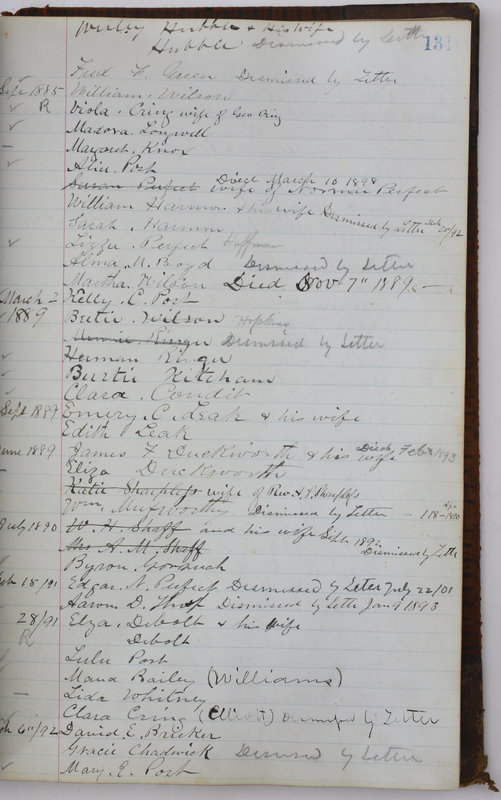 Wesley Hubble & His Wife
Hubble Dismissed by Letter
131
Fred W. Green Dismissed by Letter
Sept 1885 William Wilson
R Viola Cring wife of Geo Cring
Madora Longwell
Margaret Knox
Alice Post
Susan Perfect Died March 10 1898 wife of Norman Perfect
William Harmon & his wife Dismissed by Letter
Sarah Harmon
Lizzie Perfect Huffman
Alma M. Boyd Dismissed by Letter
Martha Wilson Died Nov 7" 1889
March 2 Kelly C. Post
1889 Butie Wilson Hopkins
Minnie Ringu Dismissed by Letter
Herman Ringu
Burtie Ketcham
Clara Condit
Sept 1889 Emery C. Leak & his wife
Edith Leak
June 1889 James F Duckworth & his wife Died Feb 8 1893
Eliza Duckworth
Katie Sharpless wife of Rev. A. P. Sharpless
Wm. Dismissed by Letter
July 1890 W. H. Shaff and his wife Sept. 1892
Mrs A. M. Shaff Dismissed by Letter
Byron
Feb 18/91 Edgar N. Perfect Dismissed by Letter July 22/01
Aaron D. Dismissed by Letter Jan 9 1893
28/91 Elza Debolt & his wife
R Debolt
Lulu Post
Maua Bailey (Williams)
Lida Whitney
Clara Cring (Elliott) Dismissed by Letter
6"/92 David E. Bricker
Gracie Chadwick Dismissed by Letter
Mary E. Post